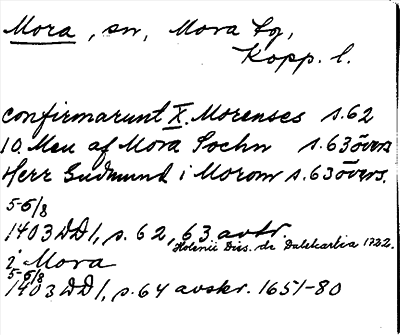 Mora, sn, Mora tg,
Kopp. l.
confirmarunt X. Morenses s. 62
10. Men af Mora Sochn s. 63 övers.
Herr Gudmund i Morom s. 63 övers.
5-6/8
1403 DD 1, s. 62, 63 avtr.
Holenii Diss. de Dalekarlia 1722.
i Mora
5-6/8
1403 DD 1, s. 64 avskr. 1651-80